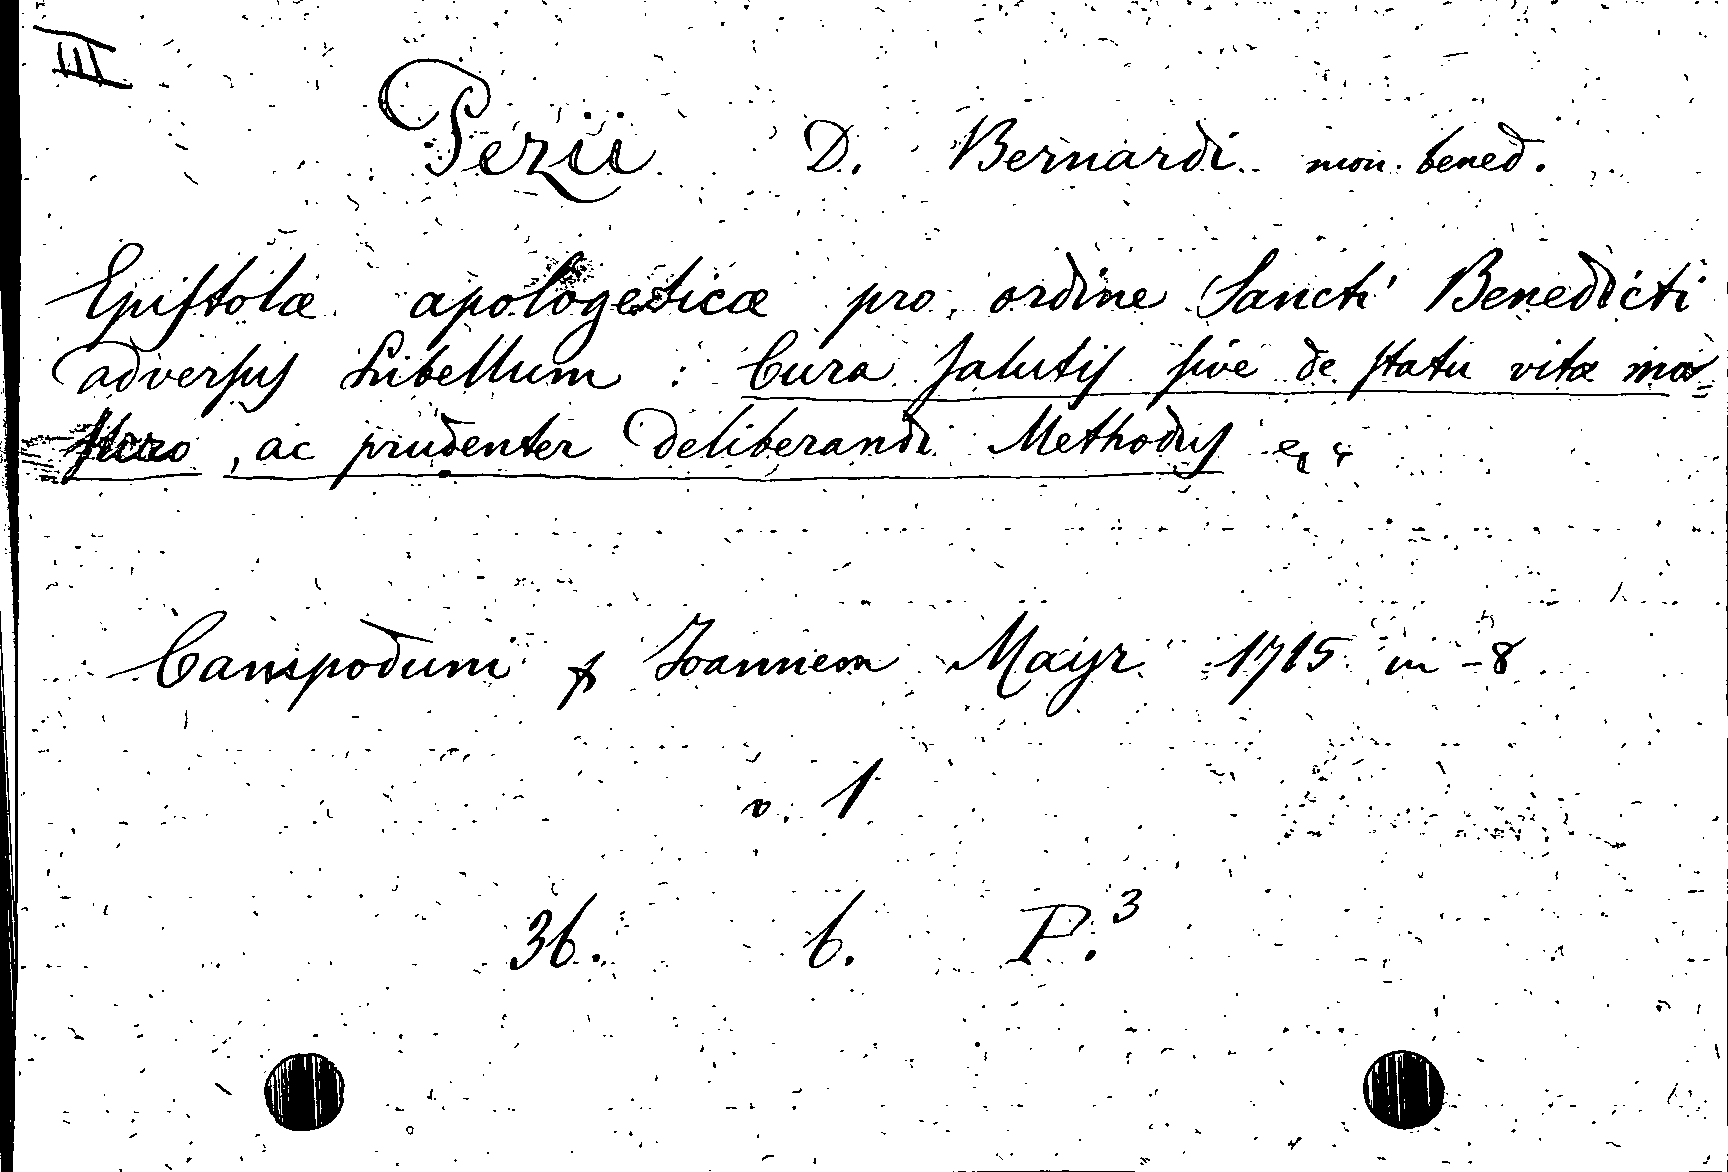 III
Pezii D. Bernardi mon. bened.
Epistolæ apologeticæ pro ordine Sancti Benedicti
adversus Libellum : Cura salutis sive de statu vitæ
, ac prudenter deliberandi Methodus
Campodum Joannem Mayr 1715 in -8
v. 1
36. 6. P.³